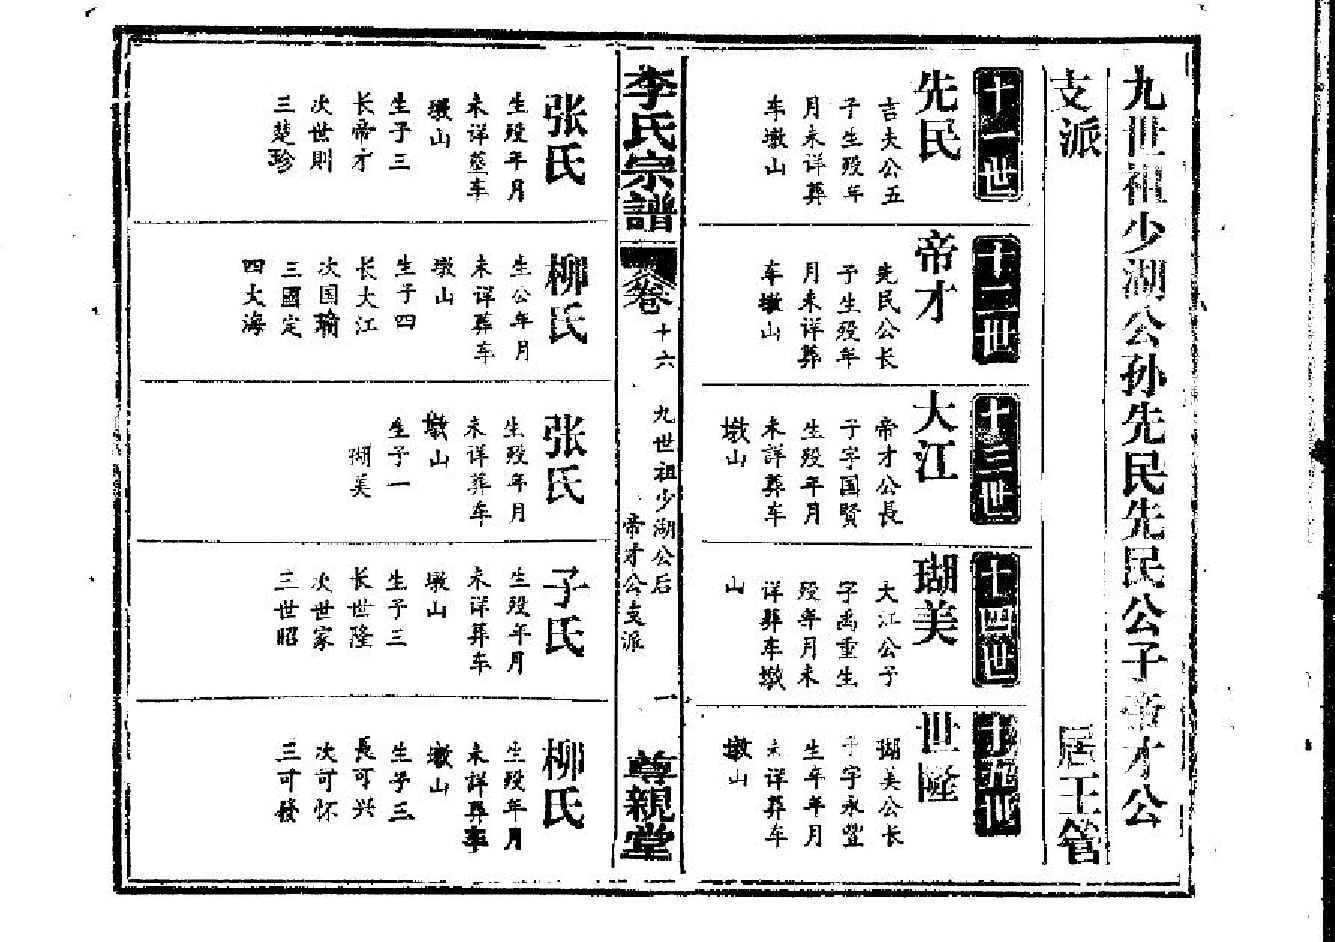 九世祖少湖公孙先民先民公子帝才公
支派
居王管
十一世
先民
吉夫公五
子生殁年
月未详葬
车墩山
十二世
帝才
先民公长
子生殁年
月未详葬
车墩山
十三世
大江
帝才公長
子字国賢
生殁年月
未詳葬车
墩山
十四世
瑚美
大江公子
字禹重生
殁年月未
详葬车墩
山
十五世
世隆
瑚美公长
子字永豐
生年年月
未详葬车
墩山
李氏宗譜
卷
十六
九世祖少湖公后
帝才公支派
一
尊親堂
张氏
生殁年月
未详葬车
墩山
生子三
长帝才
次世則
三楚珍
柳氏
生公年月
未详葬车
墩山
生子四
长大江
次国瑜
三國定
四大海
张氏
生殁年月
未详葬车
墩山
生子一
瑚美
子氏
生殁年月
未详葬车
墩山
生子三
长世隆
次世家
三世昭
柳氏
生殁年月
未详葬车
墩山
生子三
長可兴
次可怀
三可發